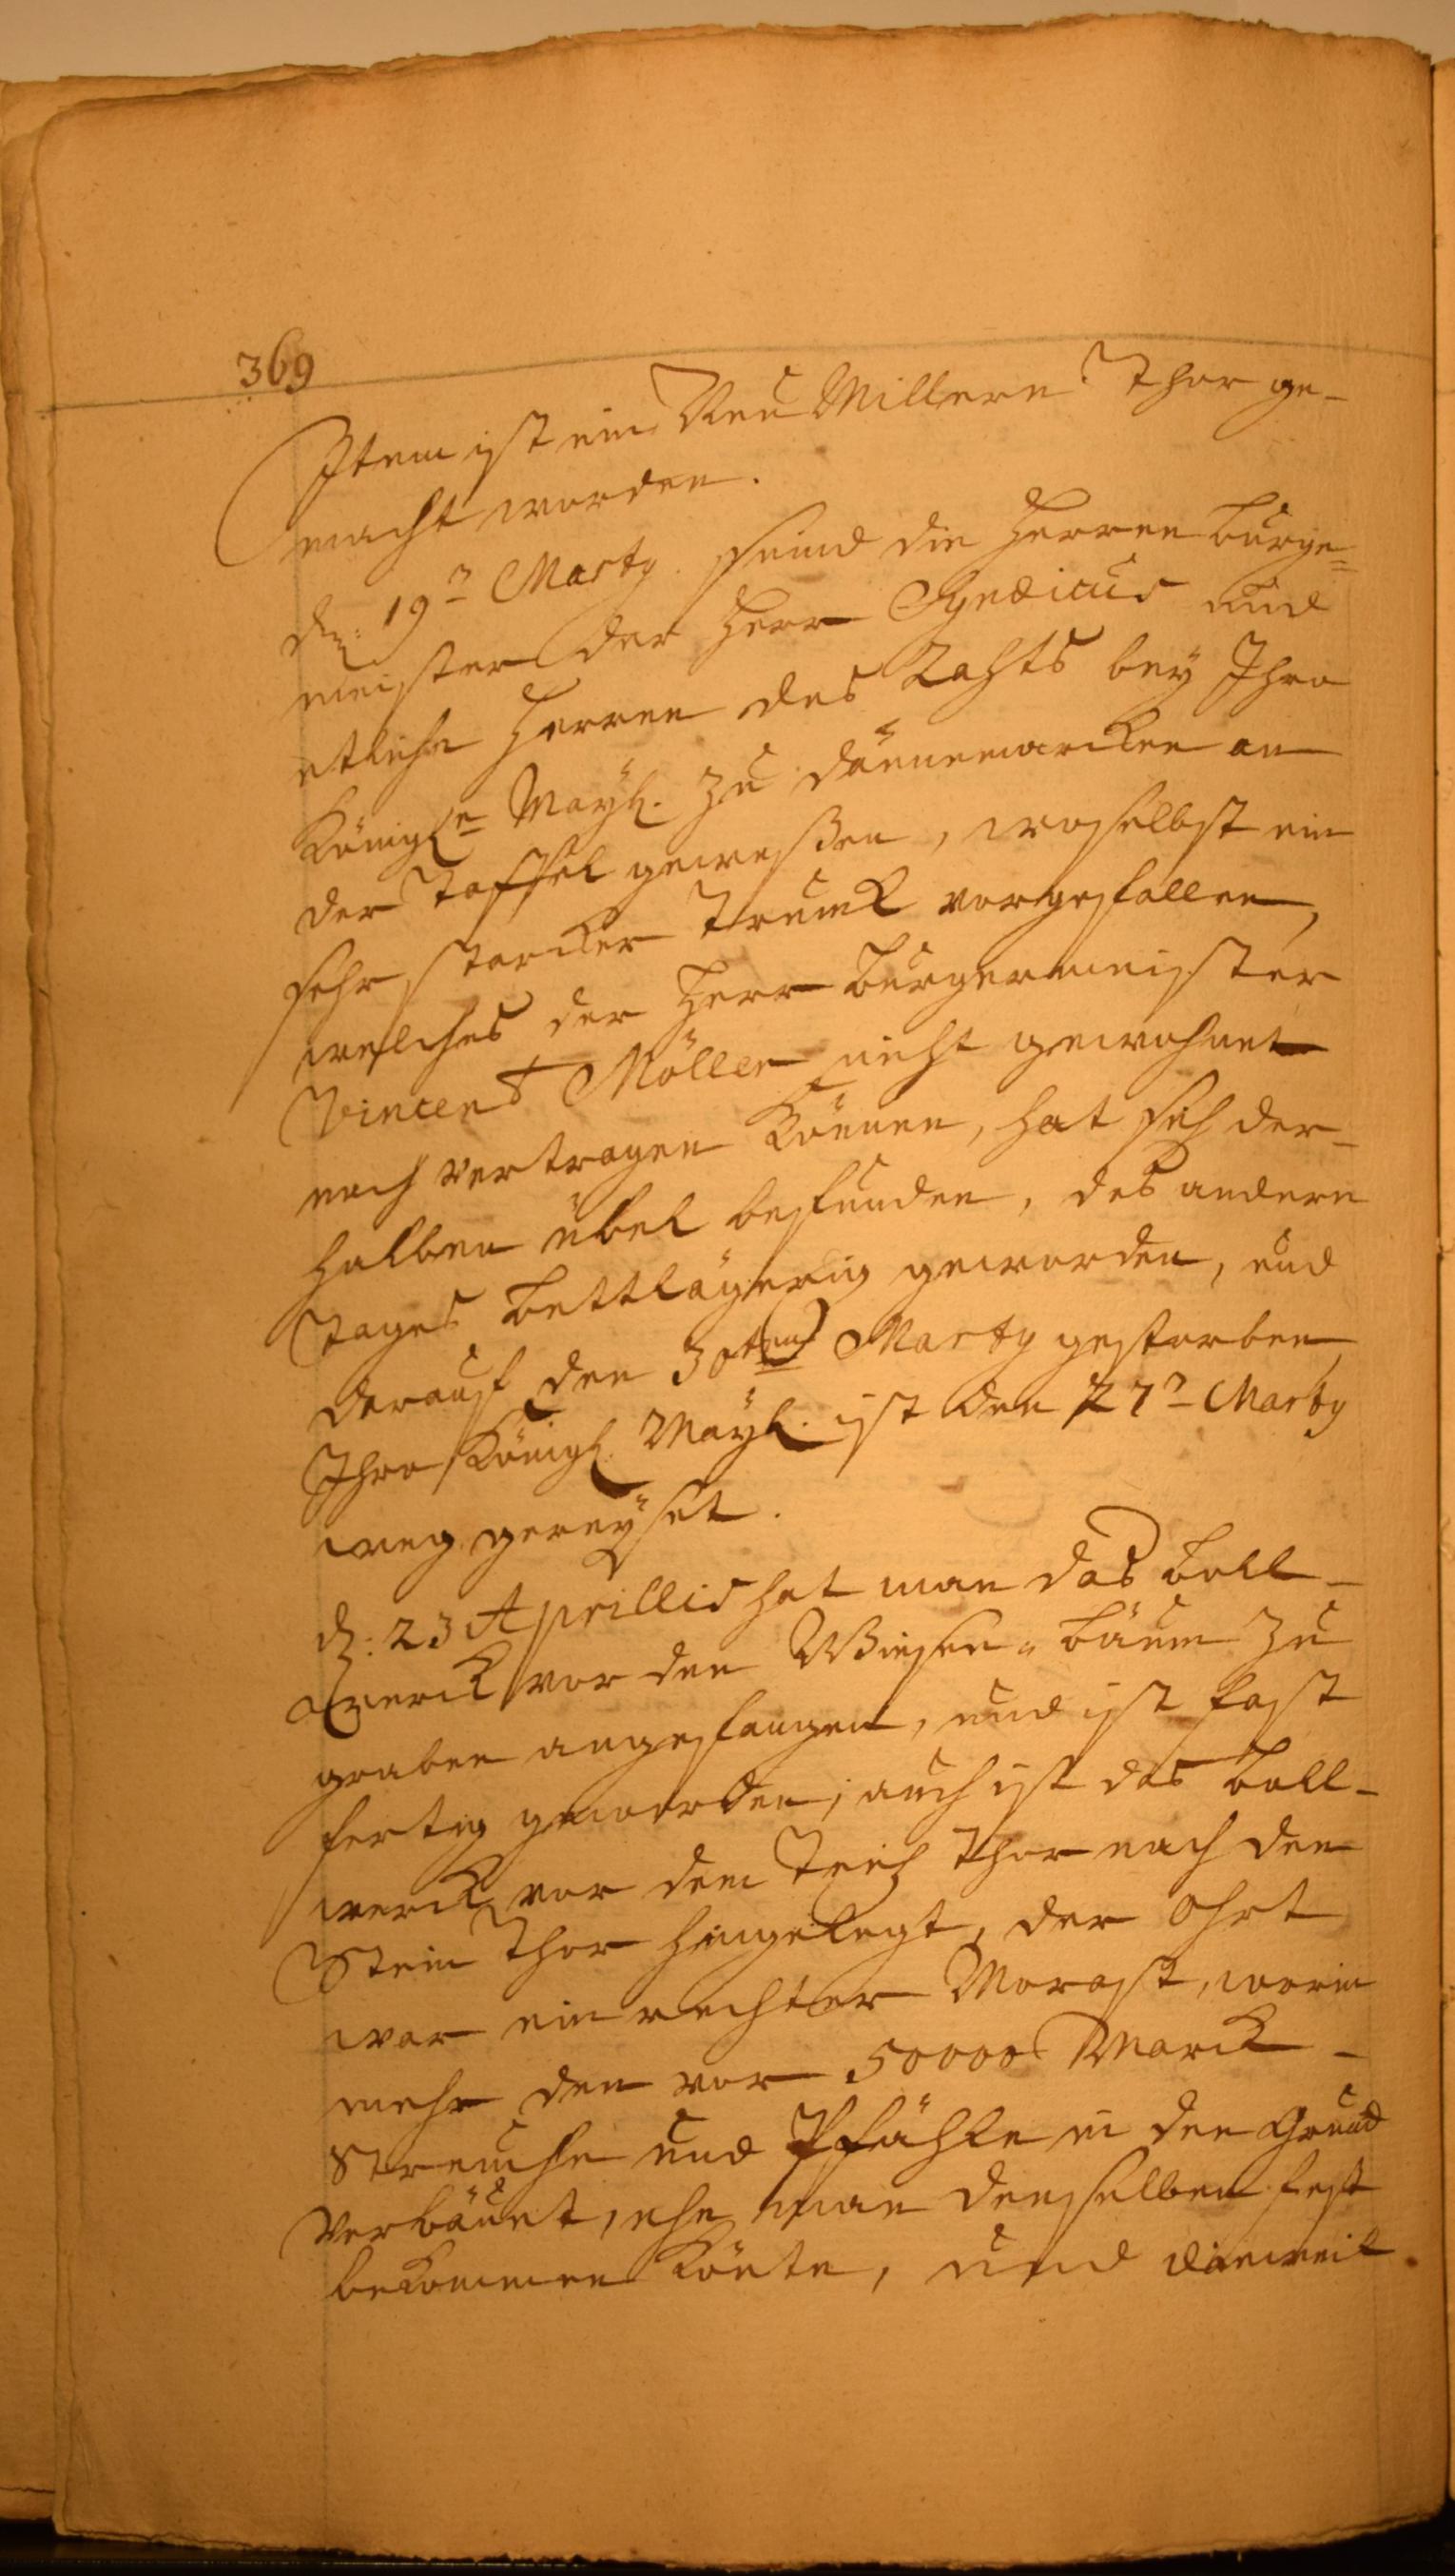 369
Item ist ein Neu Millern Thor ge-
macht worden.
dn: 19n Marty. seind die Herren Bürge=
meister der Herr Syndicus und
etliche Herren des Rahts bey Ihro
Königln Mayt. zu Dännemarcken an
der Taffel gewesen, woselbst ein
sehr starcker Trunck vorgefallen,
welches der Herr Bürgermeister
Vincent Möller nicht gewohnet
noch vertragen können, hat sich der-
halben übel befunden, des andern
Tages bettlägerig geworden, und
darauf den 30ten Marty gestorben,
Ihro Königl. Mayt. ist den 27n Marty
weg gereyset.
dn: 23 Aprillis hat man das Boll-
werck vor den Wiesen-Baum zu
graben angefangen, und ist fast
fertig geworden, auch ist das Boll-
werck vor dem Teich Thor nach den
Stein Thor hingelegt, der Ohrt
war ein rechter Morast, worin
mehr den vor 50000 Marck
Streuche und Pfähle in den Grund
verbauet, ehe man denselben fest
bekommen könte, und dieweil